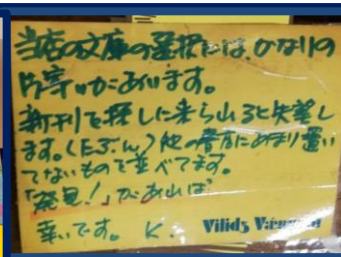 当店の文庫の選択には、かなりの
片寄りがあります。
新刊を探しに来られると失望し
ます。(たぶん)他の書店にあまり置い
てないものを並べてます。
「発見!」があれば
幸いです。 K.